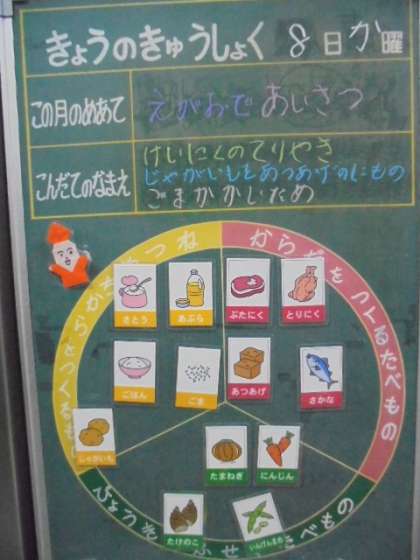 きょうのきゅうしょく 8日か曜
この月のめあて えがおであいさつ
こんだてのなまえ けいにくのてりやき
じゃがいもとあつあげのにもの
ごまかかいため
からだをつくるたべもの
さとう
あぶら
ぶたにく
とりにく
ごはん
ごま
あつあげ
さかな
じゃがいも
たまねぎ
にんじん
たけのこ
いんげんまめ